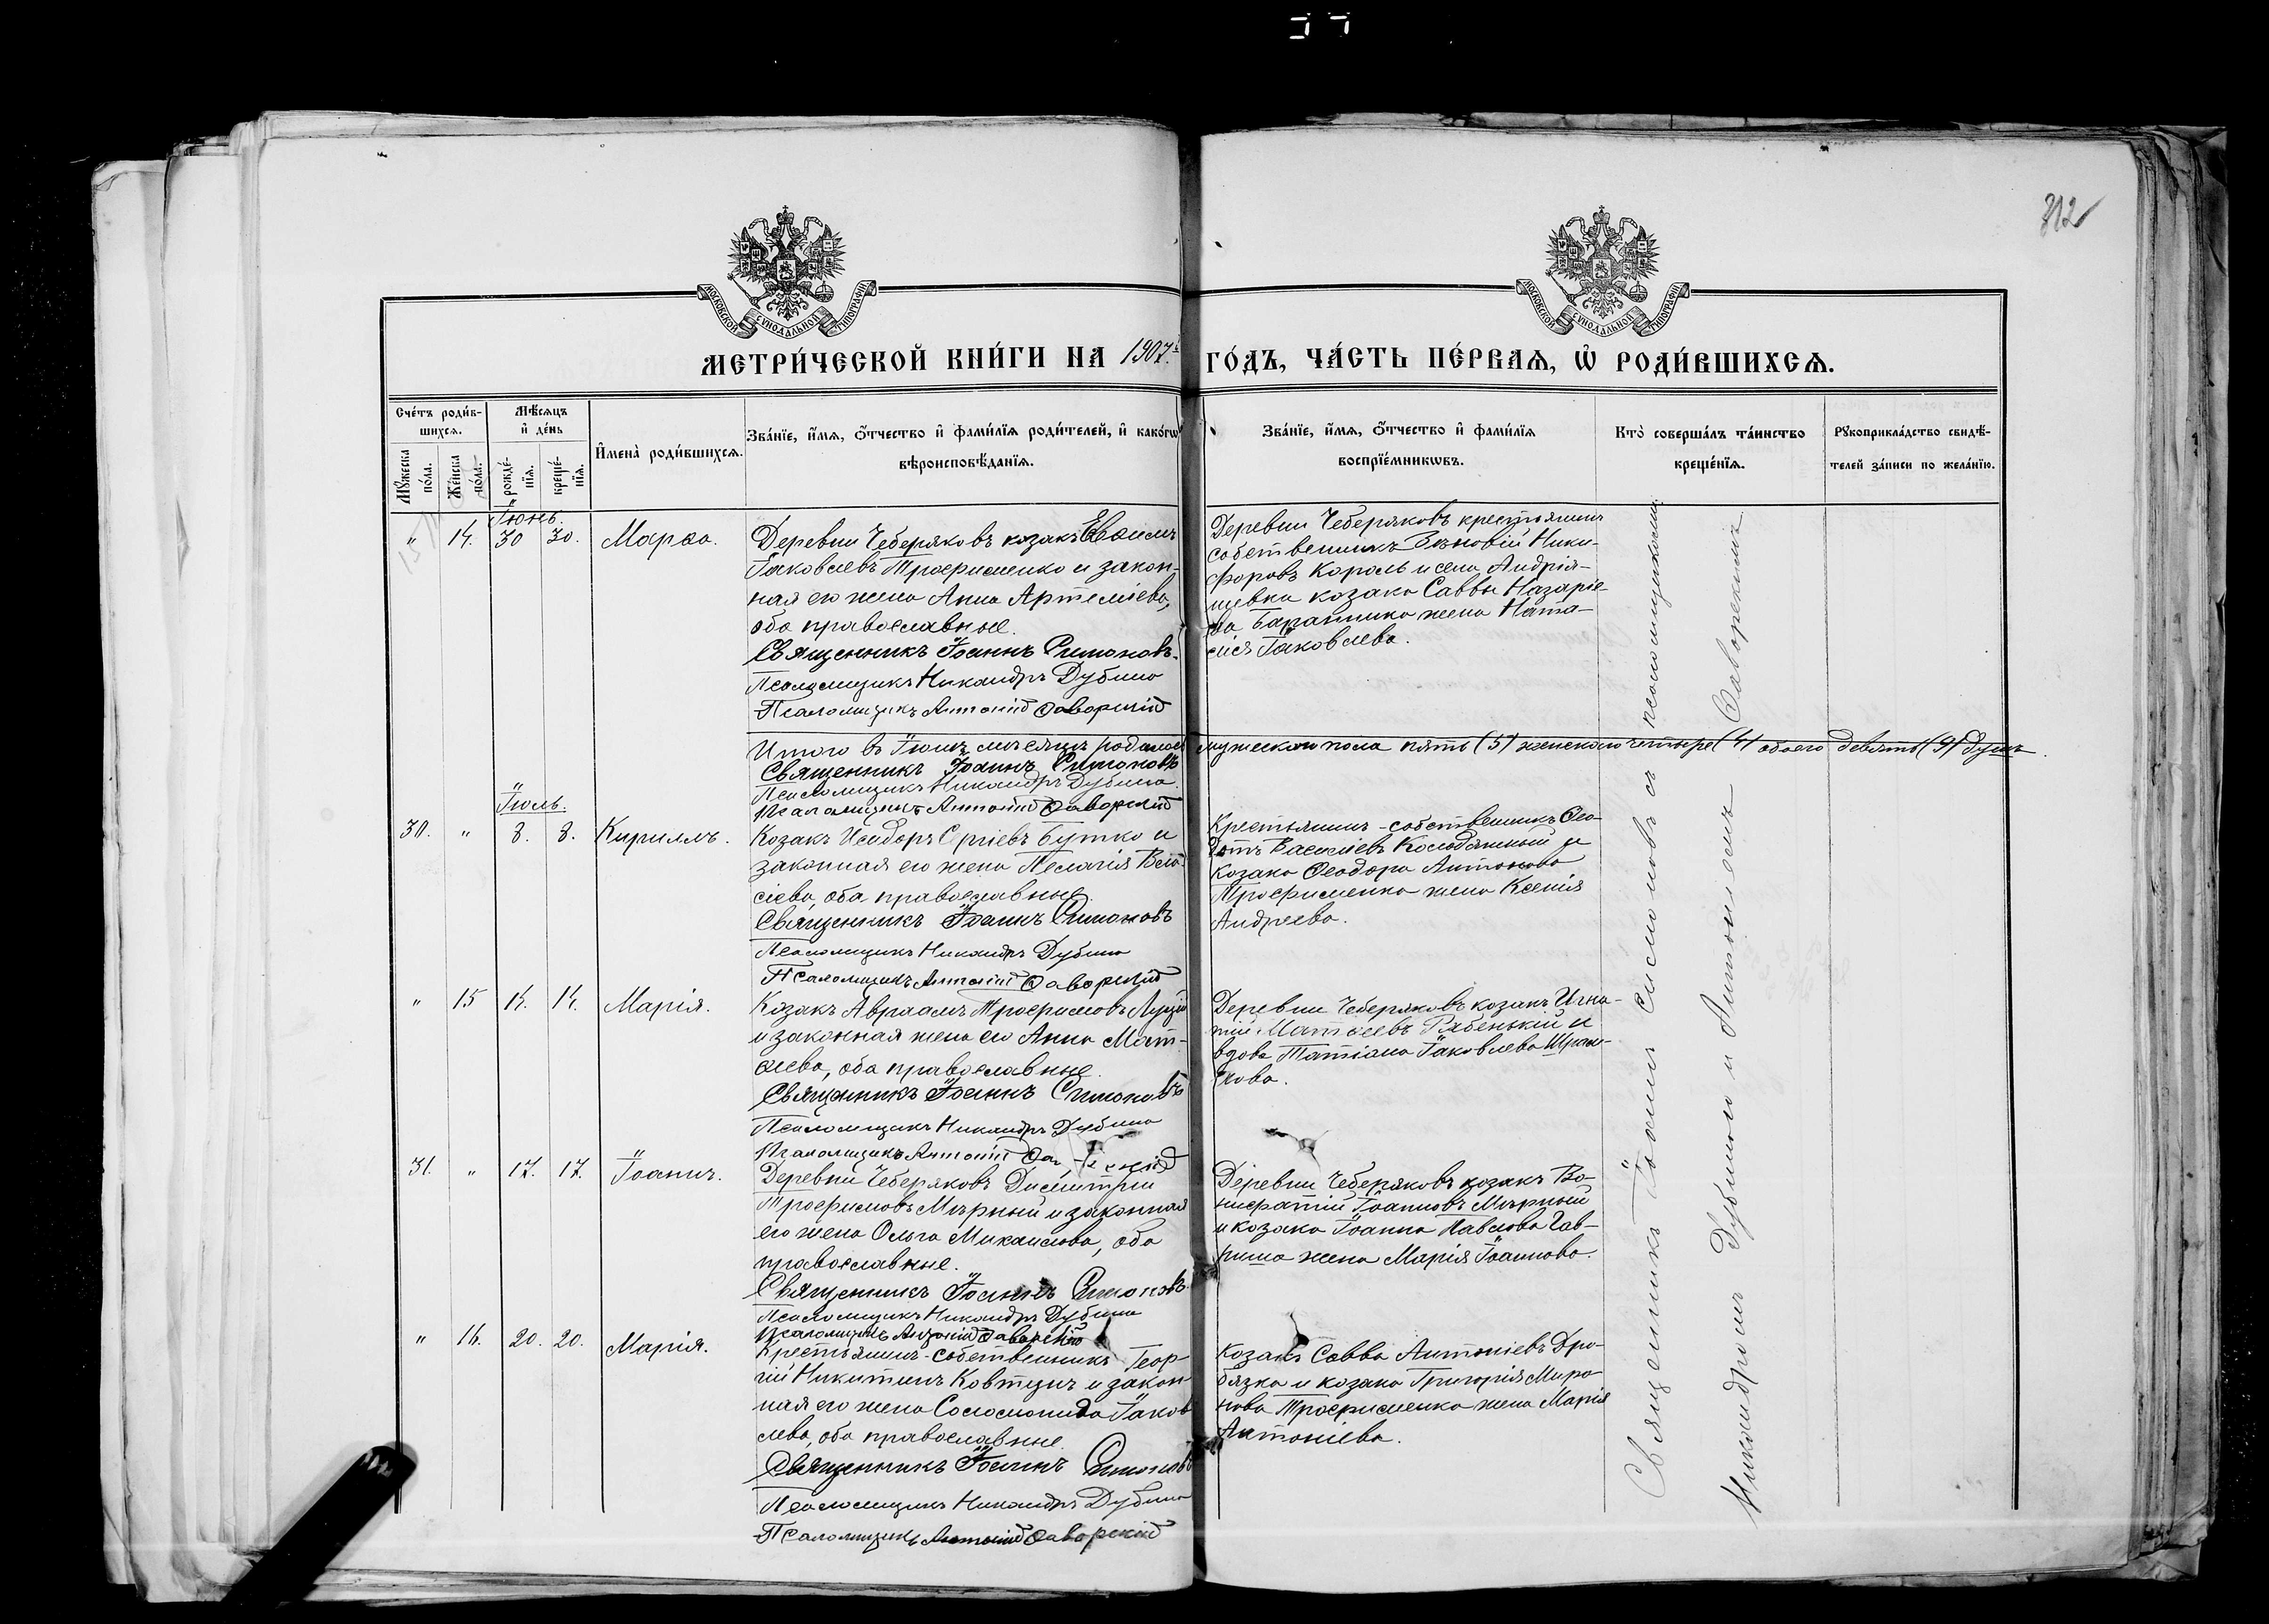 312
МОСКОВСКОЙ СѴНОДАЛЬНОЙ ТИПОГРАФІИ
МОСКОВСКОЙ СѴНОДАЛЬНОЙ ТИПОГРАФІИ
МЕТРИ́ЧЕСКОЙ КНИ́ГИ НА 1907.й ГО́ДЪ, ЧА́СТЬ ПЕ́РВАЯ, Ѡ҆ РОДИ́ВШИХСЯ.
Сче́тъ роди́в-
шихся.
Мꙋ́жеска по́ла.
Же́нска по́ла.
Мѣ́сяцъ и҆ де́нь
рожде́-
нїя.
креще́-
нїя.
И҆мена̀ роди́вшихся.
Зва́нїе, и҆́мя, ѻ҆́тчество и҆ фами́лїя роди́телей, и҆ како́гѡ
вѣроисповѣ́данїя.
Зва́нїе, и҆́мя, ѻ҆́тчество и҆ фами́лїя
воспрїе́мникѡвъ.
Кто̀ соверша́лъ та́инство
креще́нїя.
Рꙋкоприкла́дство свидѣ́-
телей за́писи по жела́нїю.
Іюнь.
" 14. 30 30. Марѳа.
Деревни Чеберяковъ козакъ Евѳимъ
Іаковлевъ Трофименко и закон-
ная его жена Анна Артеміева,
оба православные.
Священникъ Іоаннъ Симоновъ.
Псаломщикъ Никандръ Дубина
Псаломщикъ Антоній Ѳаворскій
Деревни Чеберяковъ крестьянинъ
собственникъ Зѣновій Ники-
форовъ Король и села Андрія-
шевки козака Саввы Назаріе-
ва Баранника жена Ната-
лія Іаковлева.
Итого въ Іюнѣ мѣсяцѣ родилось мужескаго пола пять (5) женскаго четыре (4) обоего девять (9) душъ.
Священникъ Іоаннъ Симоновъ
Псаломщикъ Никандръ Дубина
Псаломщикъ Антоній Ѳаворскій
Іюль.
30. " 8. 8. Кириллъ.
Козакъ Исидоръ Сергіевъ Бутко и
законная его жена Пелагія Вла-
сіева, оба православные.
Священникъ Іоаннъ Симоновъ
Псаломщикъ Никандръ Дубина
Псаломщикъ Антоній Ѳаворскій
Крестьянинъ-собственникъ Ѳео-
дотъ Василіевъ Колодяжный и
козака Ѳеодора Антонова
Трофименка жена Ксенія
Андреева.
" 15 14. 14. Марія.
Козакъ Авраамъ Трофимовъ
и законная жена его Анна Мат-
ѳеева, оба православные.
Священникъ Іоаннъ Симоновъ
Псаломщикъ Никандръ Дубина
Псаломщикъ Антоній
Деревни Чеберяковъ козакъ Игна-
тій Матѳеевъ Рябенькій и
вдова Татіана Іаковлева
31. " 17. 17. Іоаннъ.
Деревни Чеберяковъ Димитрій
Трофимовъ Мѣрный и законная
его жена Ольга Михаилова, оба
православные.
Священникъ Іоаннъ Симоновъ
Псаломщикъ Никандръ Дубина
Псаломщикъ Антоній Ѳаворскій
Деревни Чеберяковъ козакъ Во-
нифатій Іоанновъ Мѣрный
и козака Іоанна Павлова Гав-
риша жена Марія Іоаннова.
" 16. 20. 20. Марія.
Крестьянинъ-собственникъ Геор-
гій Никитинъ Ковтунъ и закон-
ная его жена Соломонида Іаков
лева, оба православные.
Священникъ Іоаннъ Симоновъ
Псаломщикъ Никандръ Дубина
Псаломщикъ Антоній Ѳаворскій
Козакъ Савва Антоніевъ Дро-
бязка и козака Григорія Миро
нова Трофименка жена Марія
Антоніева.
Священникъ Іоаннъ Симоновъ съ псаломщиками
Никандромъ Дубиною и Антоніемъ Ѳаворскимъ